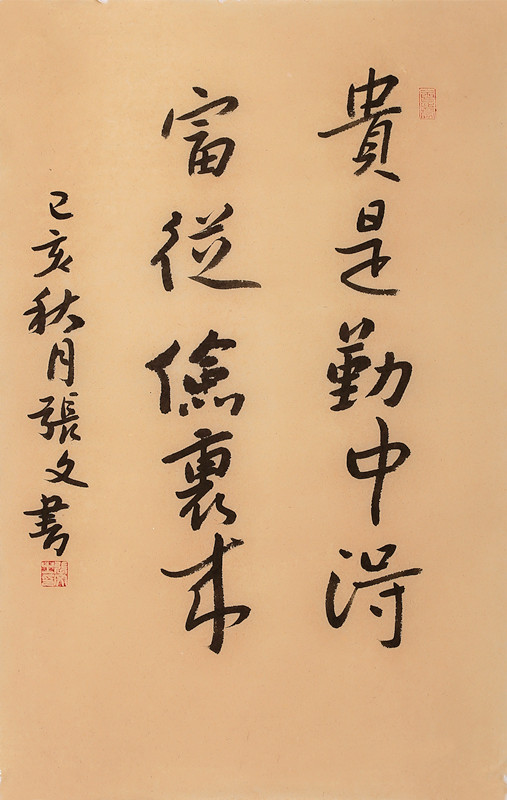 貴是勤中得
富從儉裏來
己亥秋月張文書